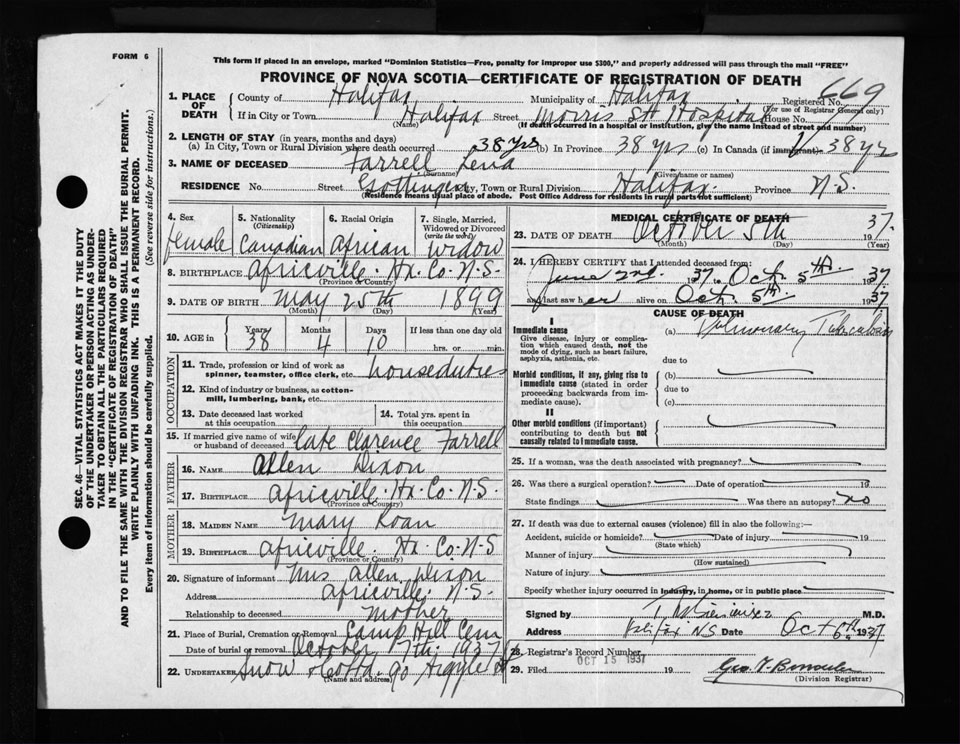 FORM 6
This form if placed in an envelope, marked "Dominion Statistics—Free, penalty for improper use $300," and properly addressed will pass through the mail "FREE"
PROVINCE OF NOVA SCOTIA—CERTIFICATE OF REGISTRATION OF DEATH
SEC. 46—VITAL STATISTICS ACT MAKES IT THE DUTY
OF THE UNDERTAKER OR PERSON ACTING AS UNDER-
TAKER TO OBTAIN ALL THE PARTICULARS REQUIRED
IN THE "CERTIFICATE OF REGISTRATION OF DEATH"
AND TO FILE THE SAME WITH THE DIVISION REGISTRAR WHO SHALL ISSUE THE BURIAL PERMIT.
WRITE PLAINLY WITH UNFADING INK. THIS IS A PERMANENT RECORD.
Every item of information should be carefully supplied. (See reverse side for instructions.)
1. PLACE OF DEATH
County of Halifax Municipality of Halifax Registered No. 669
(For use of Registrar General only)
If in City or Town Halifax Street Morris St Hospital House No.
(Name) (If death occurred in a hospital or institution, give the name instead of street and number)
2. LENGTH OF STAY (in years, months and days)
(a) In City, Town or Rural Division where death occurred 38 yrs (b) In Province 38 yrs (c) In Canada (if immigrant) 38 yrs
3. NAME OF DECEASED Farrell Lena
(Surname) (Given name or names)
RESIDENCE No. Street Gottingen City, Town or Rural Division Halifax Province N.S.
(Residence means usual place of abode. Post Office Address for residents in rural parts not sufficient)
4. Sex female
5. Nationality (Citizenship) Canadian
6. Racial Origin African
7. Single, Married, Widowed or Divorced (write the word) Widow
8. BIRTHPLACE Africville. Hx. Co. N.S.
(Province or Country)
9. DATE OF BIRTH May 25th 1899
(Month) (Day) (Year)
10. AGE in Years 38 Months 4 Days 10 If less than one day old hrs. or min.
OCCUPATION
11. Trade, profession or kind of work as spinner, teamster, office clerk, etc. houseduties
12. Kind of industry or business, as cotton-mill, lumbering, bank, etc.
13. Date deceased last worked at this occupation
14. Total yrs. spent in this occupation
15. If married give name of wife or husband of deceased late Clarence Farrell
FATHER
16. NAME Allen Dixon
17. BIRTHPLACE Africville. Hx. Co. N.S.
(Province or Country)
MOTHER
18. MAIDEN NAME Mary Roan
19. BIRTHPLACE Africville. Hx. Co. N.S
(Province or Country)
20. Signature of informant Mrs Allen Dixon
Address Africville N.S.
Relationship to deceased Mother
21. Place of Burial, Cremation or Removal Camp Hill Cem
Date of burial or removal October 7th. 1937
22. UNDERTAKER Snow & Co Ltd. 90 Argyle St
(Name and address)
MEDICAL CERTIFICATE OF DEATH
23. DATE OF DEATH October 5th 1937.
(Month) (Day) (Year)
24. I HEREBY CERTIFY that I attended deceased from:
June 2nd. 1937 to Oct. 5th. 1937
and last saw her alive on Oct. 5th. 1937
CAUSE OF DEATH
I
Immediate cause
Give disease, injury or complica-
tion which caused death, not the
mode of dying, such as heart failure,
asphyxia, asthenia, etc.
(a) Pulmonary Tuberculosis
due to
Morbid conditions, if any, giving rise to
immediate cause (stated in order
proceeding backwards from im-
mediate cause).
(b)
due to
(c)
II
Other morbid conditions (if important)
contributing to death but not
causally related to immediate cause.
25. If a woman, was the death associated with pregnancy?
26. Was there a surgical operation? Date of operation 19
State findings Was there an autopsy? no
27. If death was due to external causes (violence) fill in also the following:—
Accident, suicide or homicide? Date of injury 19
(State which)
Manner of injury
(How sustained)
Nature of injury
Specify whether injury occurred in industry, in home, or in public place
Signed by M.D.
Address Halifax NS Date Oct 6th. 1937
28. Registrar's Record Number
29. Filed OCT 15 1937 19
(Division Registrar)